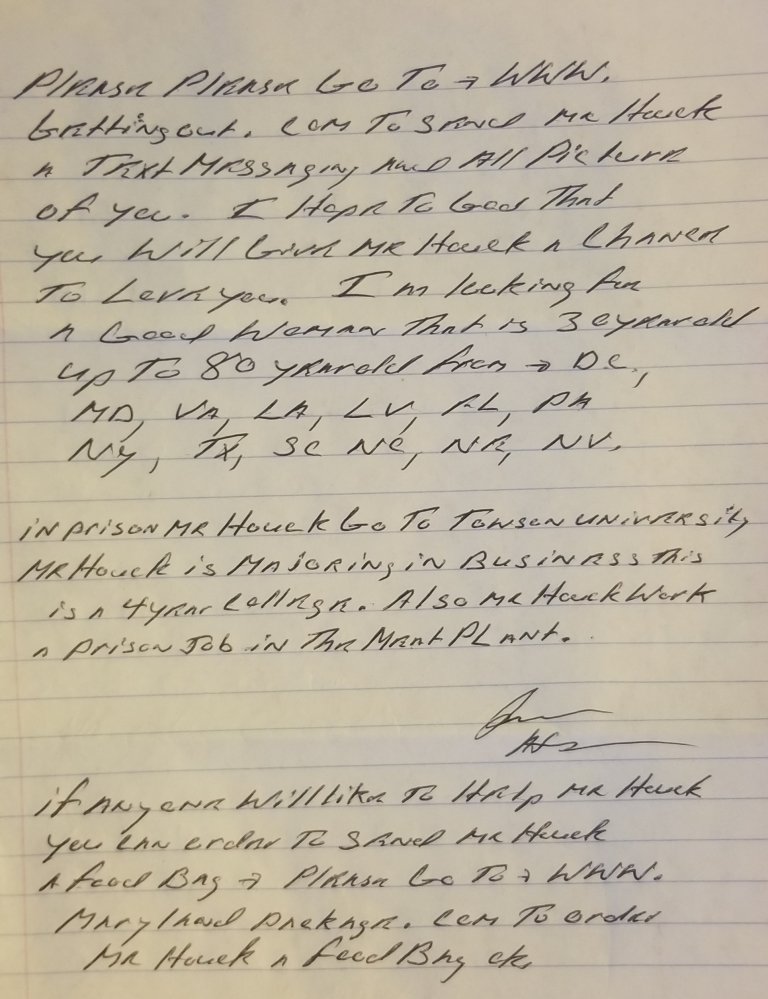 Please Please Go To → WWW.
Gettingout. Com To Send Mr Houck
a Text Messaging, and All Picture
of you. I Hope To God That
you Will Give Mr Houck a Chance
To Love you. I'm looking for
a Good Woman That is 30 year old
up To 80 year old from → DC,
MD, VA, LA, LV, FL, PA
NY, TX, SC NC, NE, NV.
in prison Mr Houck Go To Towson University
Mr Houck is Majoring in Business This
is a 4 year College. Also Mr Houck Work
a prison Job in The Meat Plant.
if Anyone Will like To Help Mr Houck
you can order To Send Mr Houck
A food Bag → Please Go To → WWW.
Maryland package. Com To order
Mr Houck a food Bag ok